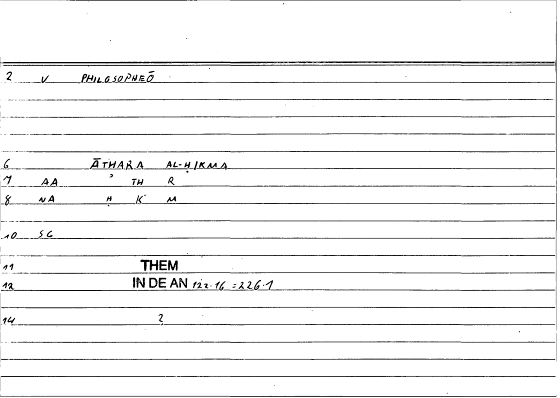 2 V PHILOSOPHEŌ
6 ĀTHARA AL-ḤIKMA
7 AA ʾ TH R
8 NA Ḥ K M
10 SG
11 THEM
12 IN DE AN 122.16 = 226.1
14 2